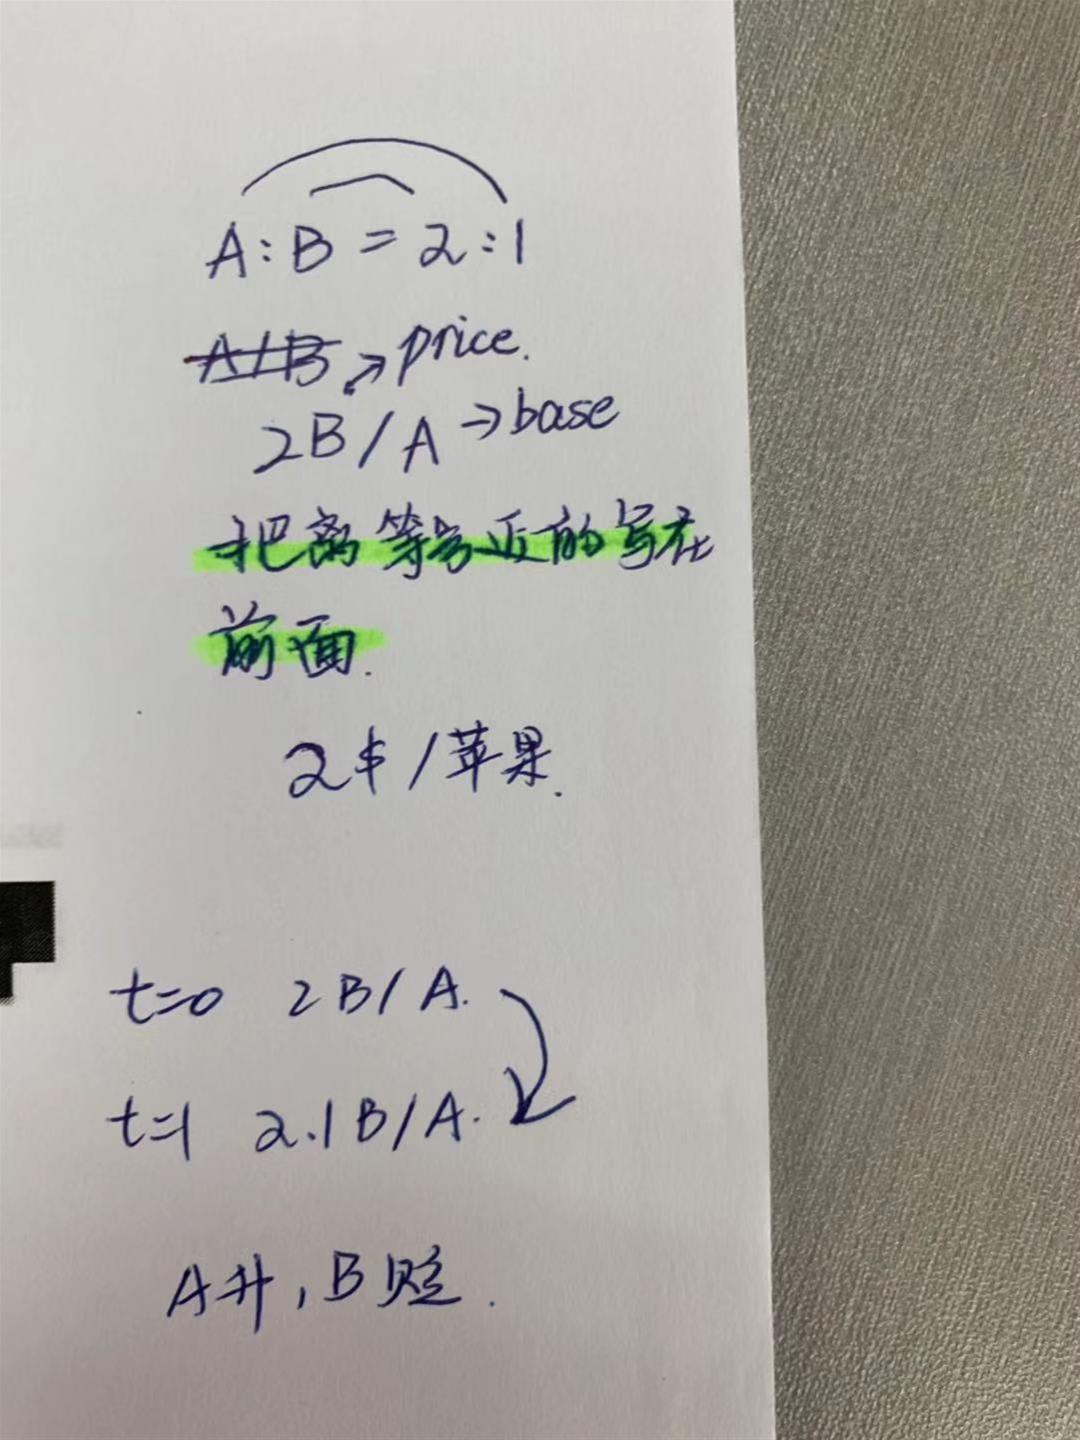 A:B = 2:1
A/B
price.
2B/A → base
把离等号近的写在
前面.
2$/苹果.
t=0 2B/A.
t=1 2.1B/A.
A升, B贬.